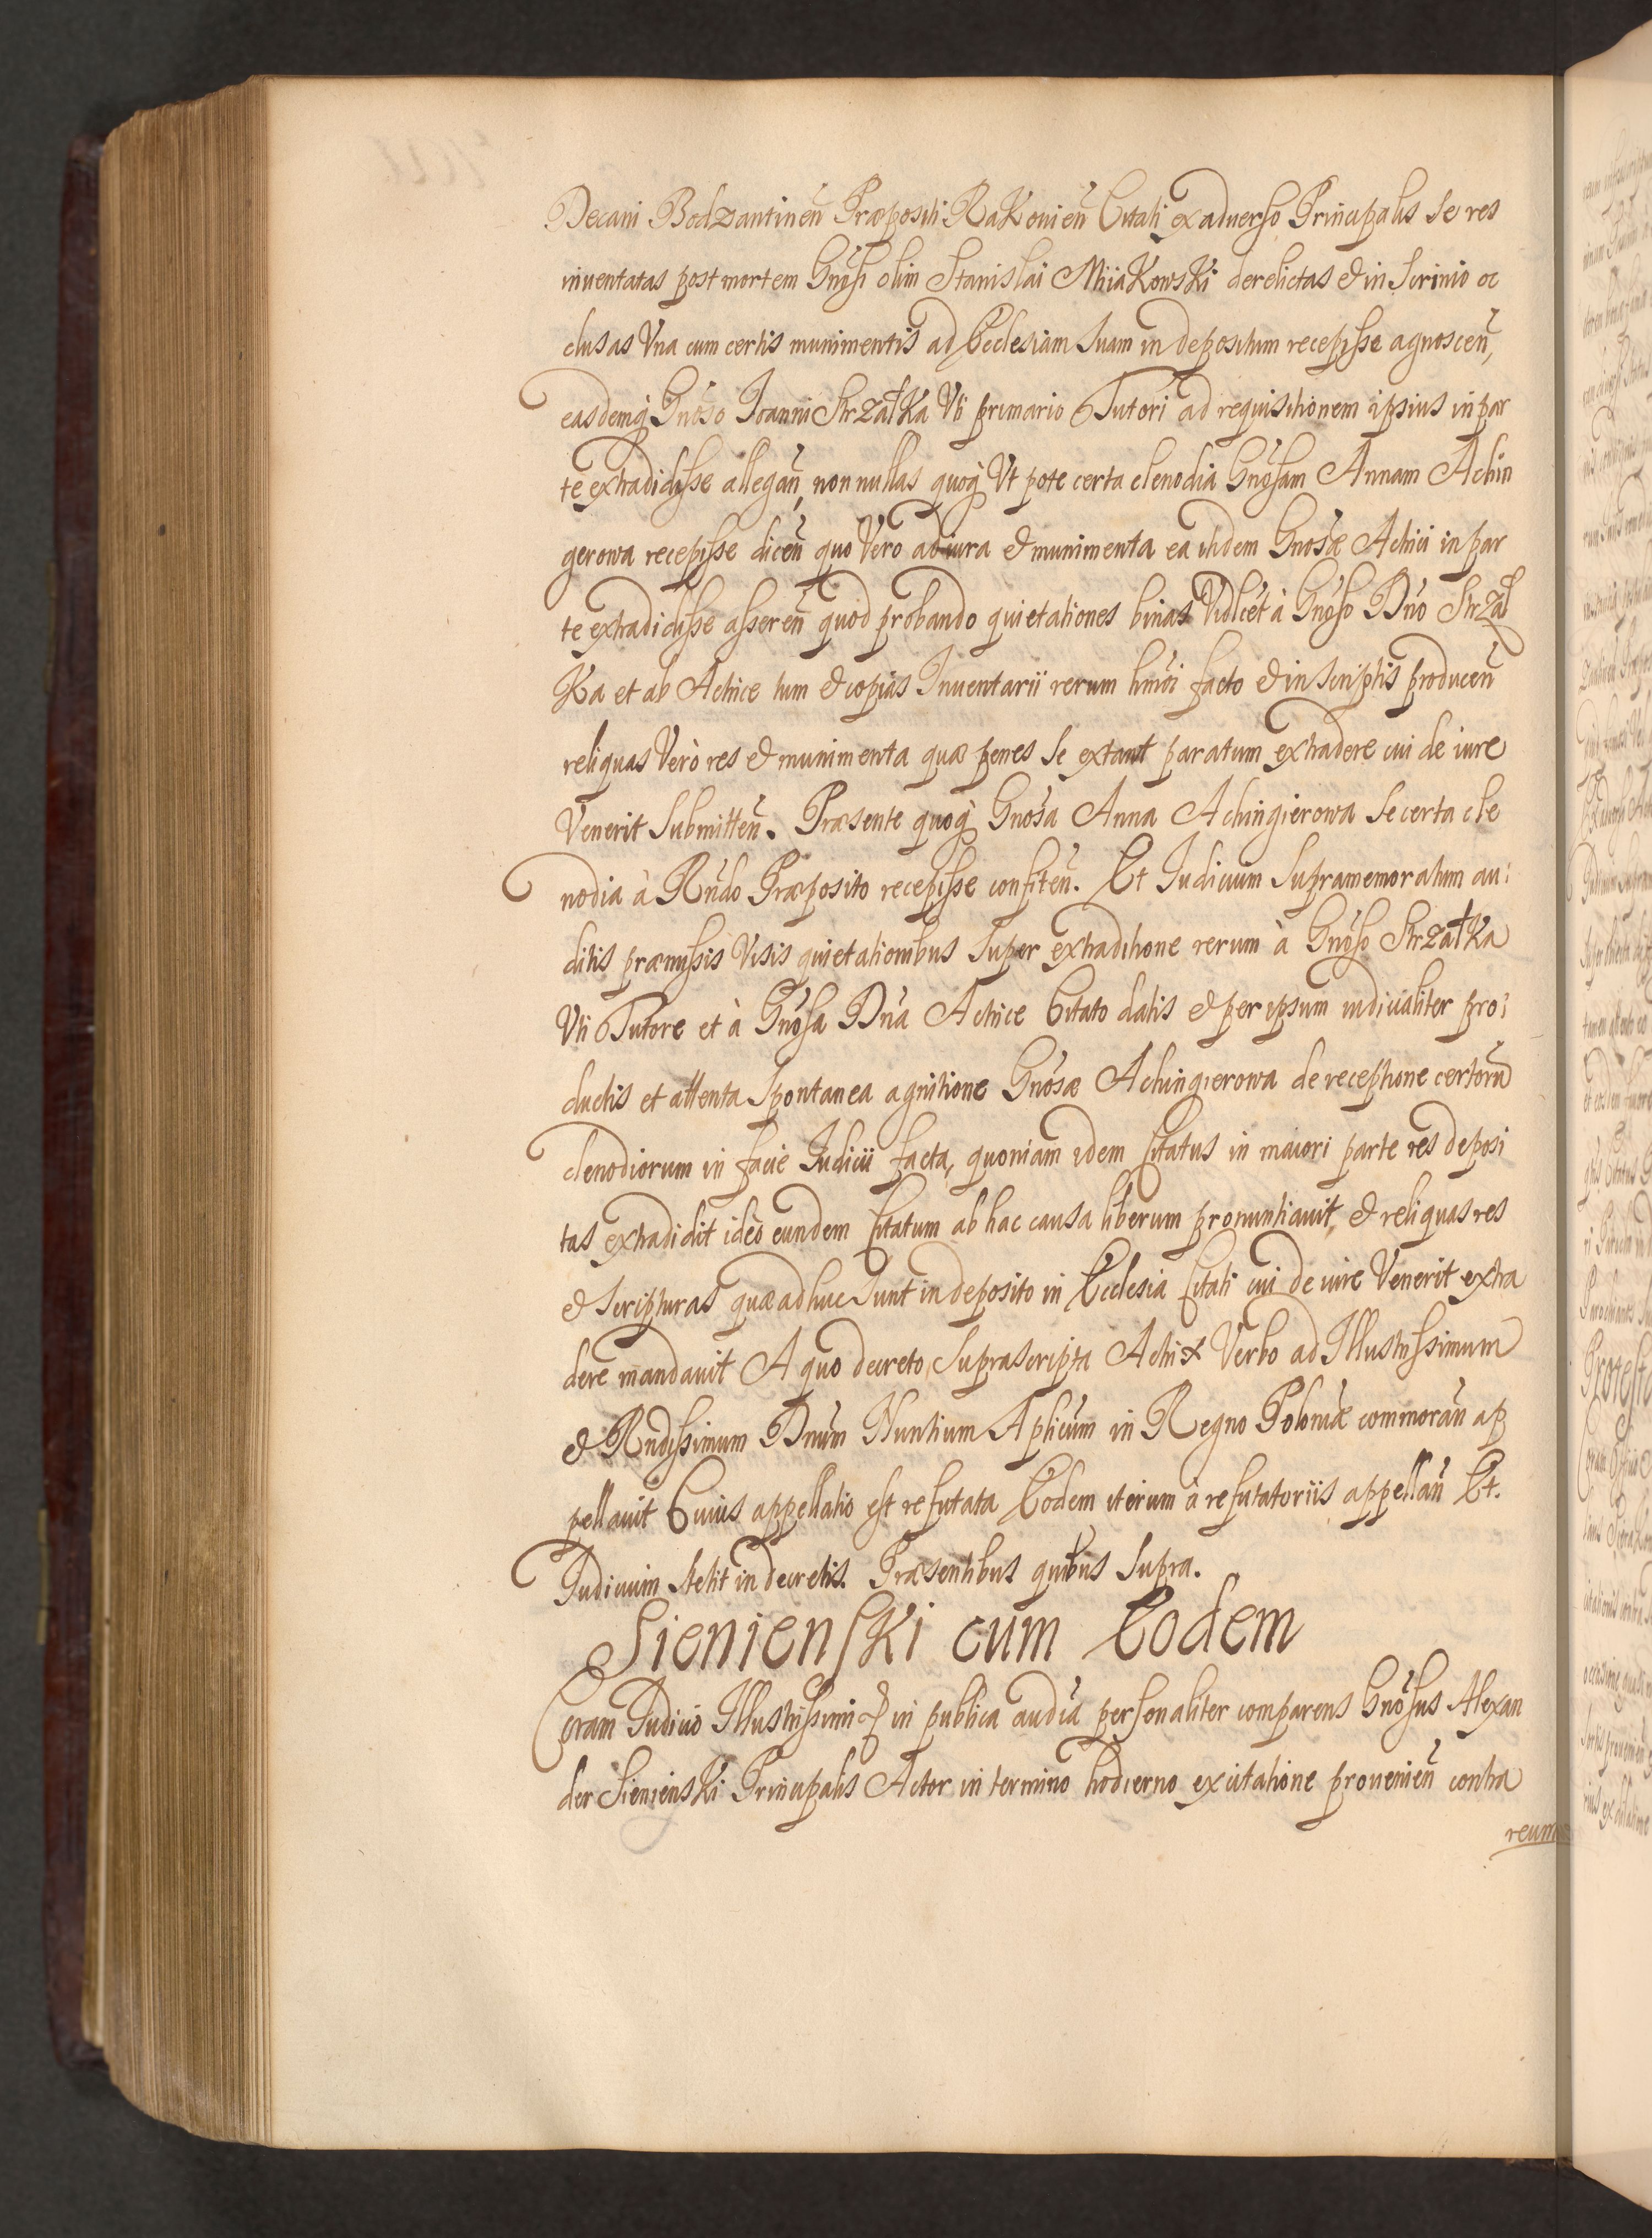 Decani Bodzantineñ Præpositi Rakovieñ Citati ex adverso Principalis se res
inventatas post mortem Gnõsi olim Stanislai Miiakowski derelictas & in Scrinio oc
clusas Vna cum certis munimentis ad Ecclesiam Suam in depositum recepisse agnosceñ,
easdemq̃ Gnõso Ioanni Strzałka Vti primario Tutori ad requisitionem ipsius in par
te extradidisse allegañ, non nullas quoq̃ Vt pote certa clenodia Gnõsam Annam Achin
gerowa recepisse diceñ quo Vero ad iura & munimenta ea itidem Gnõsæ Actrici in par
te extradidisse assereñ quod probando quietationes binas Vidlcet à Gnõso Dño Strzał
Ka et ab Actrice tum & copias Inventarii rerum hmõi facto & in Scriptis produceñ
reliquas Verò res & munimenta quæ penes se extant paratum extradere cui de iure
Venerit Submitteñ. Præsente quoq̃ Gnõsa Anna Achingierowa Se certa cle
nodia à Rñdo Præposito recepisse confiteñ. Et Iudicium Supramemoratum au:
ditis præmissis Visis quietationibus Super extraditione rerum à Gnõso Strzałka
Vti Tutore et à Gnõsa Dña Actrice Citato datis & per ipsum iudicialiter pro:
ductis et attenta Spontanea agnitione Gnõsæ Achingierowa de receptione certorũ
clenodiorum in facie Iudicii facta, quoniam idem Citatus in maiori parte res deposi
tas extradidit ideò eundem Citatum ab hac causa liberum pronuntiavit, & reliquas res
& Scripturas quæ adhuc Sunt in deposito in Ecclesia Citati cui de iure Venerit extra
dere mandavit A quo decreto Suprascripta Actrix Verbo ad Illustrissimum
& Rndissimum Dnum Nuntium Aplicum in Regno Poloniæ commorañ ap
pellavit Cuius appellatio est refutata Eodem iterum à refutatoriis appellañ Et.
Iudicium stetit in decretis. Præsentibus quibus Supra.
Sienienski cum Eodem
Coram Iudicio Illustrissimi & in publica audiã personaliter comparens Gnõsus Alexan
der Sienienski Principalis Actor in termino hodierno ex citatione provenieñ contra
reum